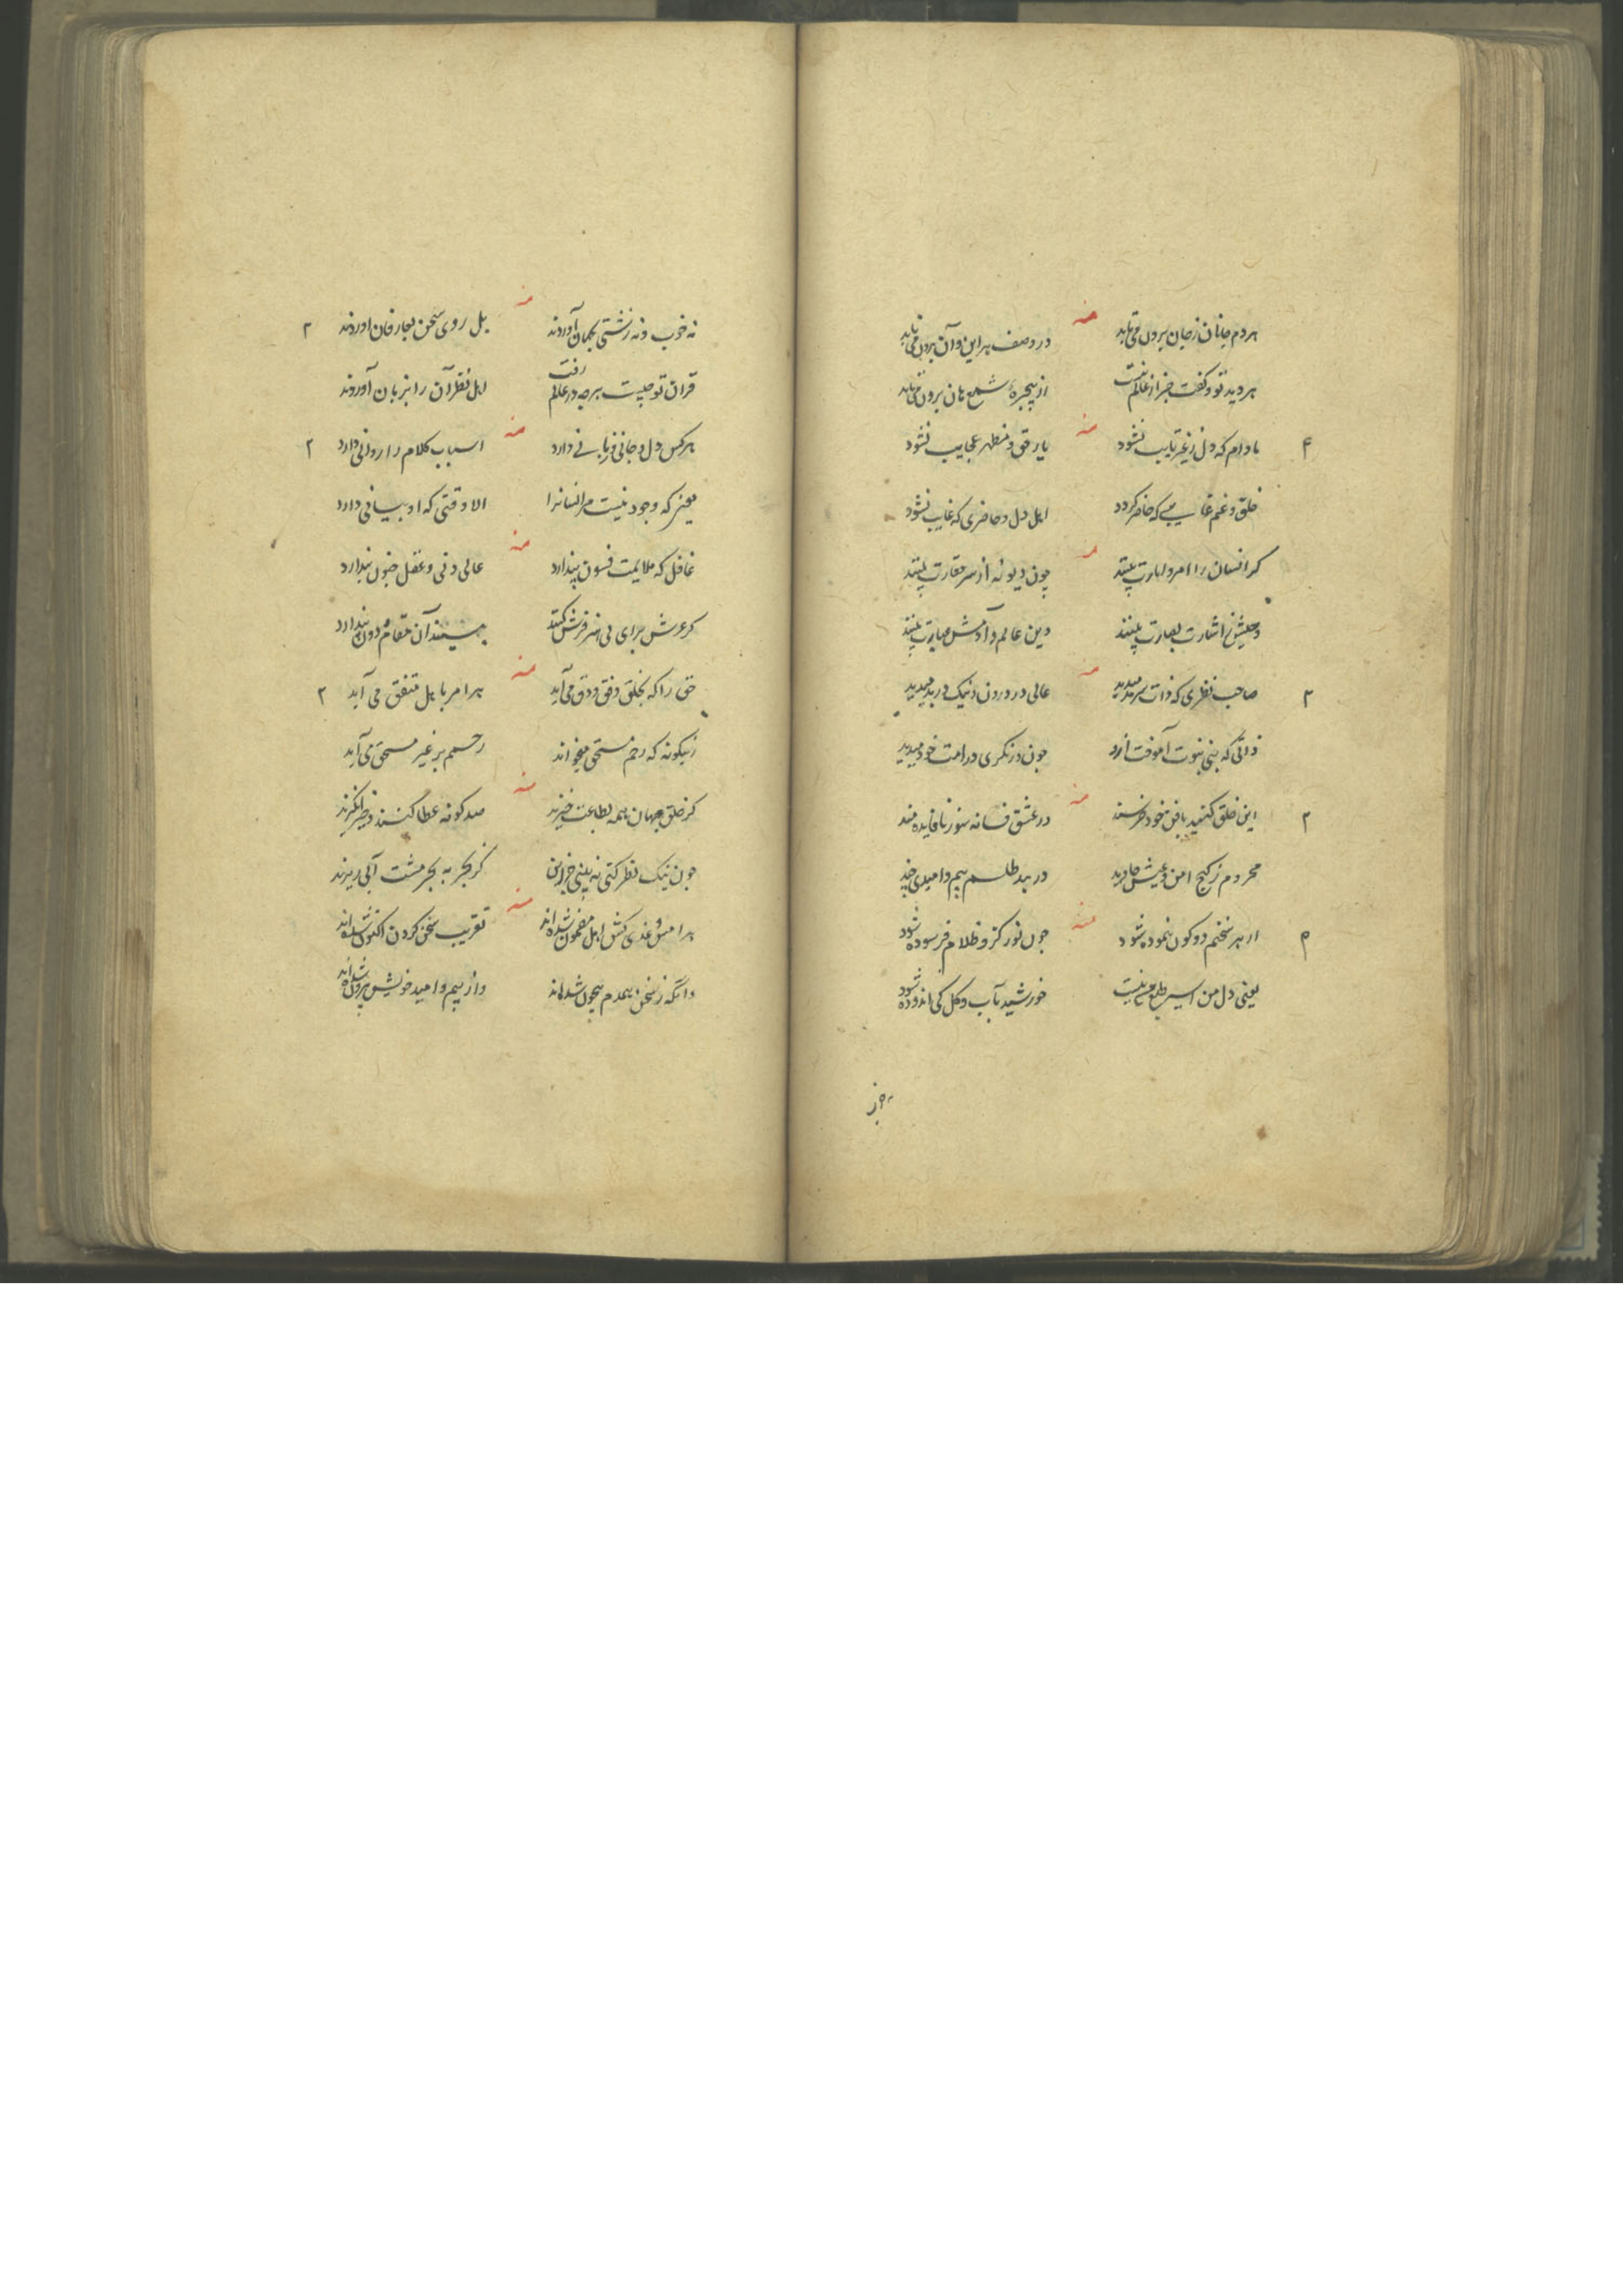 منه
هر دم جانان ز جان برون می تابد در وصف هر این و آن برون می تابد
هر دیده تو و کفت جز از عالم نیست از پنجرهٔ شمع هان برون می تابد
منه
۴ مادام که دل ز غیر تایب نشود یار حق و مظهر عجایب نشود
خلق و غم غایبی که حاضر کردد اهل دل و حاضری که غایب نشود
منه
کر انسان را امر و امارت بینند چون دیو نه از سر حقارت بینند
و حیش اشارت بصارت بینند وین عالم و آدمش عبارت بینند
منه
۲ صاحب نظری که ذات سرمد میدید عالی در و درون و نیک و بد میدید
ذاتی که نبی نبوت آموخت ازو چون در نکری در امت خود میدید
منه
۲ این خلق کنند با فن خود خرسند در عشق فسانه سوز نافایده مند
محروم ز کنج امن و عیش جاوید در بند طلسم بیم و امیدی چند
منه
۴ از هر سخنم دو کون بنموده شود چون نور کزو ظلام فرسوده شود
یعنی دل من اسیر طبع من نیست خورشید بآب و کل کی اندوده شود
نه خوب
منه
نه خوب و نه زشتی بجهان آوردند بل روی سخن بعارفان آوردند ۲
قران تو چیست هرچه در عالم رفت اهل نظر آن را بزبان آوردند
منه
هر کس دل و جانی و زبانی دارد اسباب کلام را روانی دارد ۲
یعنی که وجود نیست مر انسانرا الا وقتی که او بیانی دارد
منه
غافل که ملایمت فسون پندارد عالی دنی و عقل جنون پندارد
کر عرش برای بی هنر فرش کنند بنشیند آن مقام و دون پندارد
منه
حق را که بخلق وفق و دق می آید هر امر با هل متفق می آید ۲
زینکونه که رحم مستحق میخواند رحم بر غیر مستحق می آید
منه
کر خلق جهان همه بطاعت خیزند صد کونه عطا کنند و خیر انکیزند
چون نیک نظر کنی نه بینی جز این کز بحر به بحر مشت آبی ریزند
منه
هر امتی و غذی کش اهل مضمون شده اند تقریب سخن کردن اکنون شده اند
وانکه ز سخن همدم بیچون شده اند واز بیم و امید خویش بیرون شده اند